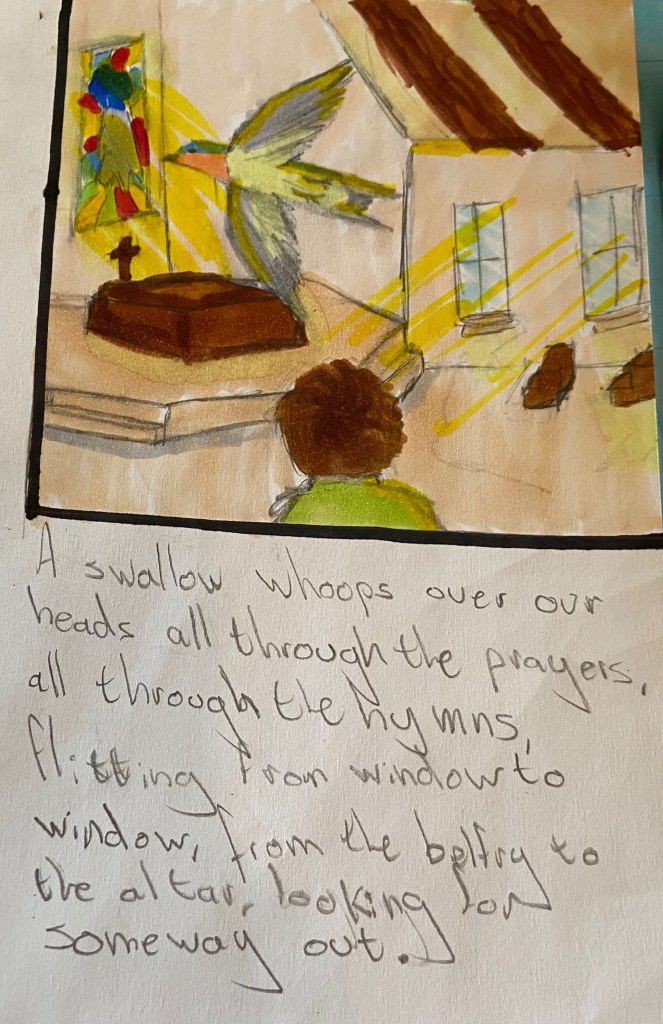 A swallow whoops over our
heads all through the prayers,
all through the hymns,
flitting from window to
window, from the belfry to
the altar, looking for
someway out.